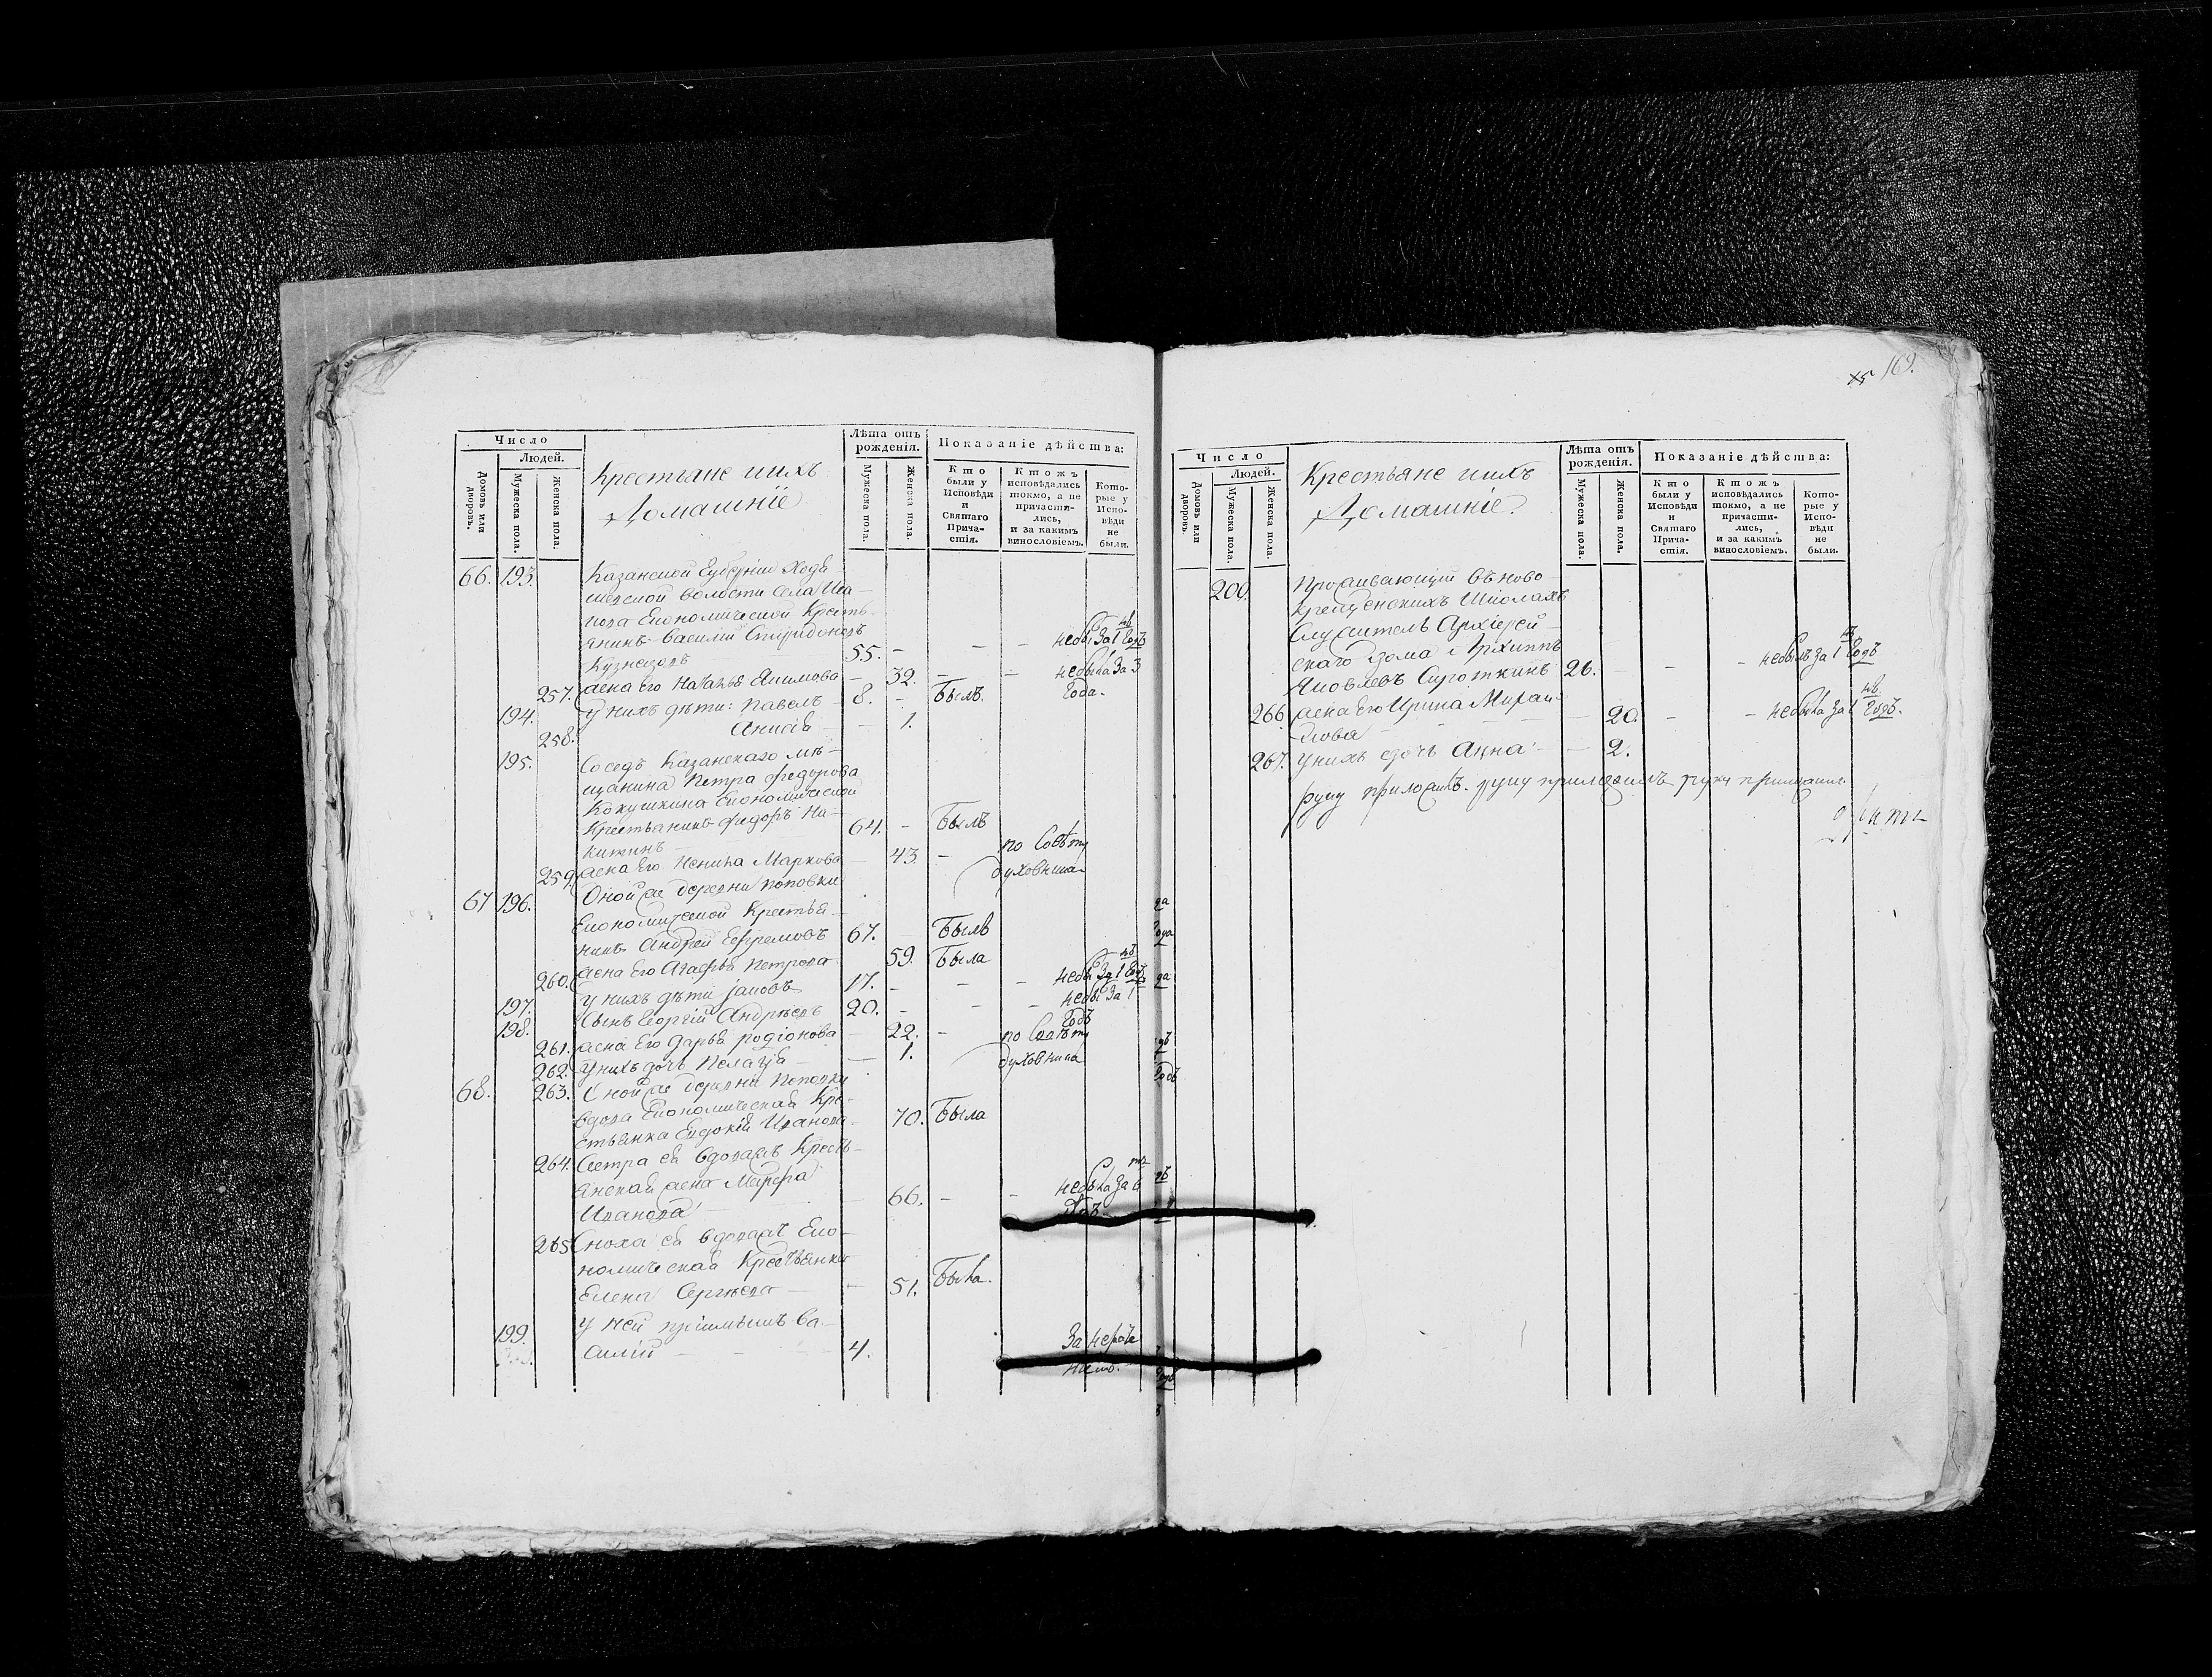 169.
Число
Людей.
Домовъ или дворовъ.
Мужеска пола.
Женска пола.
Крестьяне ихъ
Домашніе
Лѣта отъ рожденія.
Мужеска пола.
Женска пола.
Показаніе дѣйства:
Кто были у Исповѣди и Святаго Причастія.
Ктожъ исповѣдались токмо, а не причастились, и за какимъ винословіемъ.
Которые у Исповѣди не были.
66. 193. Казанской Губерніи
волости села
Економической Кресть-
янинъ Василій Спиридоновъ
Кузнецовъ 55. - - - небы. За 1 Годъ
257. жена Его Наталья Якимова - 32. - - небыла За 3
Года.
194. у нихъ дѣти: Павелъ - 8. - Былъ.
258. Анисія - 1.
195. Соседъ Казанскаго мѣ-
щанина Петра Федорова
Кокушкина Економической
Крестьянинъ Федоръ Ни-
китинъ 64. - Былъ
259. жена Его Маркова - 43. - по Совѣту
духовника
67 196. Оной же деревни Поповки
Економической Крестья-
нинъ Андрей Ефремовъ 67. Былъ
260. жена Его Агафья Петрова 59. Была
197. у нихъ дѣти Іаковъ 17. - - - небы За 1 Годъ
198. Сынъ Георгій Андреевъ 20. - - - небы За 1
Годъ
261. жена Его Дарья Родіонова - 22. - по Совѣту
262. у нихъ дочь Пелагія - 1. духовника
68. 263. Оной же деревни Поповки
вдова Економическая Кре-
стьянка Евдокія Иванова 70. Была
264. Сестра ея вдовая Кресть-
янская жена Марфа
Иванова - 66. - - небыла За 6
265. Сноха ея вдовая Еко-
номическая Крестьянка
Елена Сергеева - 51. Была.
199. у ней пріимышъ Ва-
силій - - - 4.
Число
Людей.
Домовъ или дворовъ.
Мужеска пола.
Женска пола.
Крестьяне ихъ
Домашніе
Лѣта отъ рожденія.
Мужеска пола.
Женска пола.
Показаніе дѣйства:
Кто были у Исповѣди и Святаго Причастія.
Ктожъ исповѣдались токмо, а не причастились, и за какимъ винословіемъ.
Которые у Исповѣди не были.
200. Проживающій въ Ново-
крещенскихъ Школахъ
Служитель Архіерей-
скаго дома Архиппъ
Яковлевъ Сироткинъ 26. - - небылъ За 1 Годъ
266. жена Его Ирина Михай-
лова - 20. - - небыла За 1 Годъ.
267. у нихъ дочь Анна - - 2.
руку приложилъ. руку приложилъ руку приложилъ